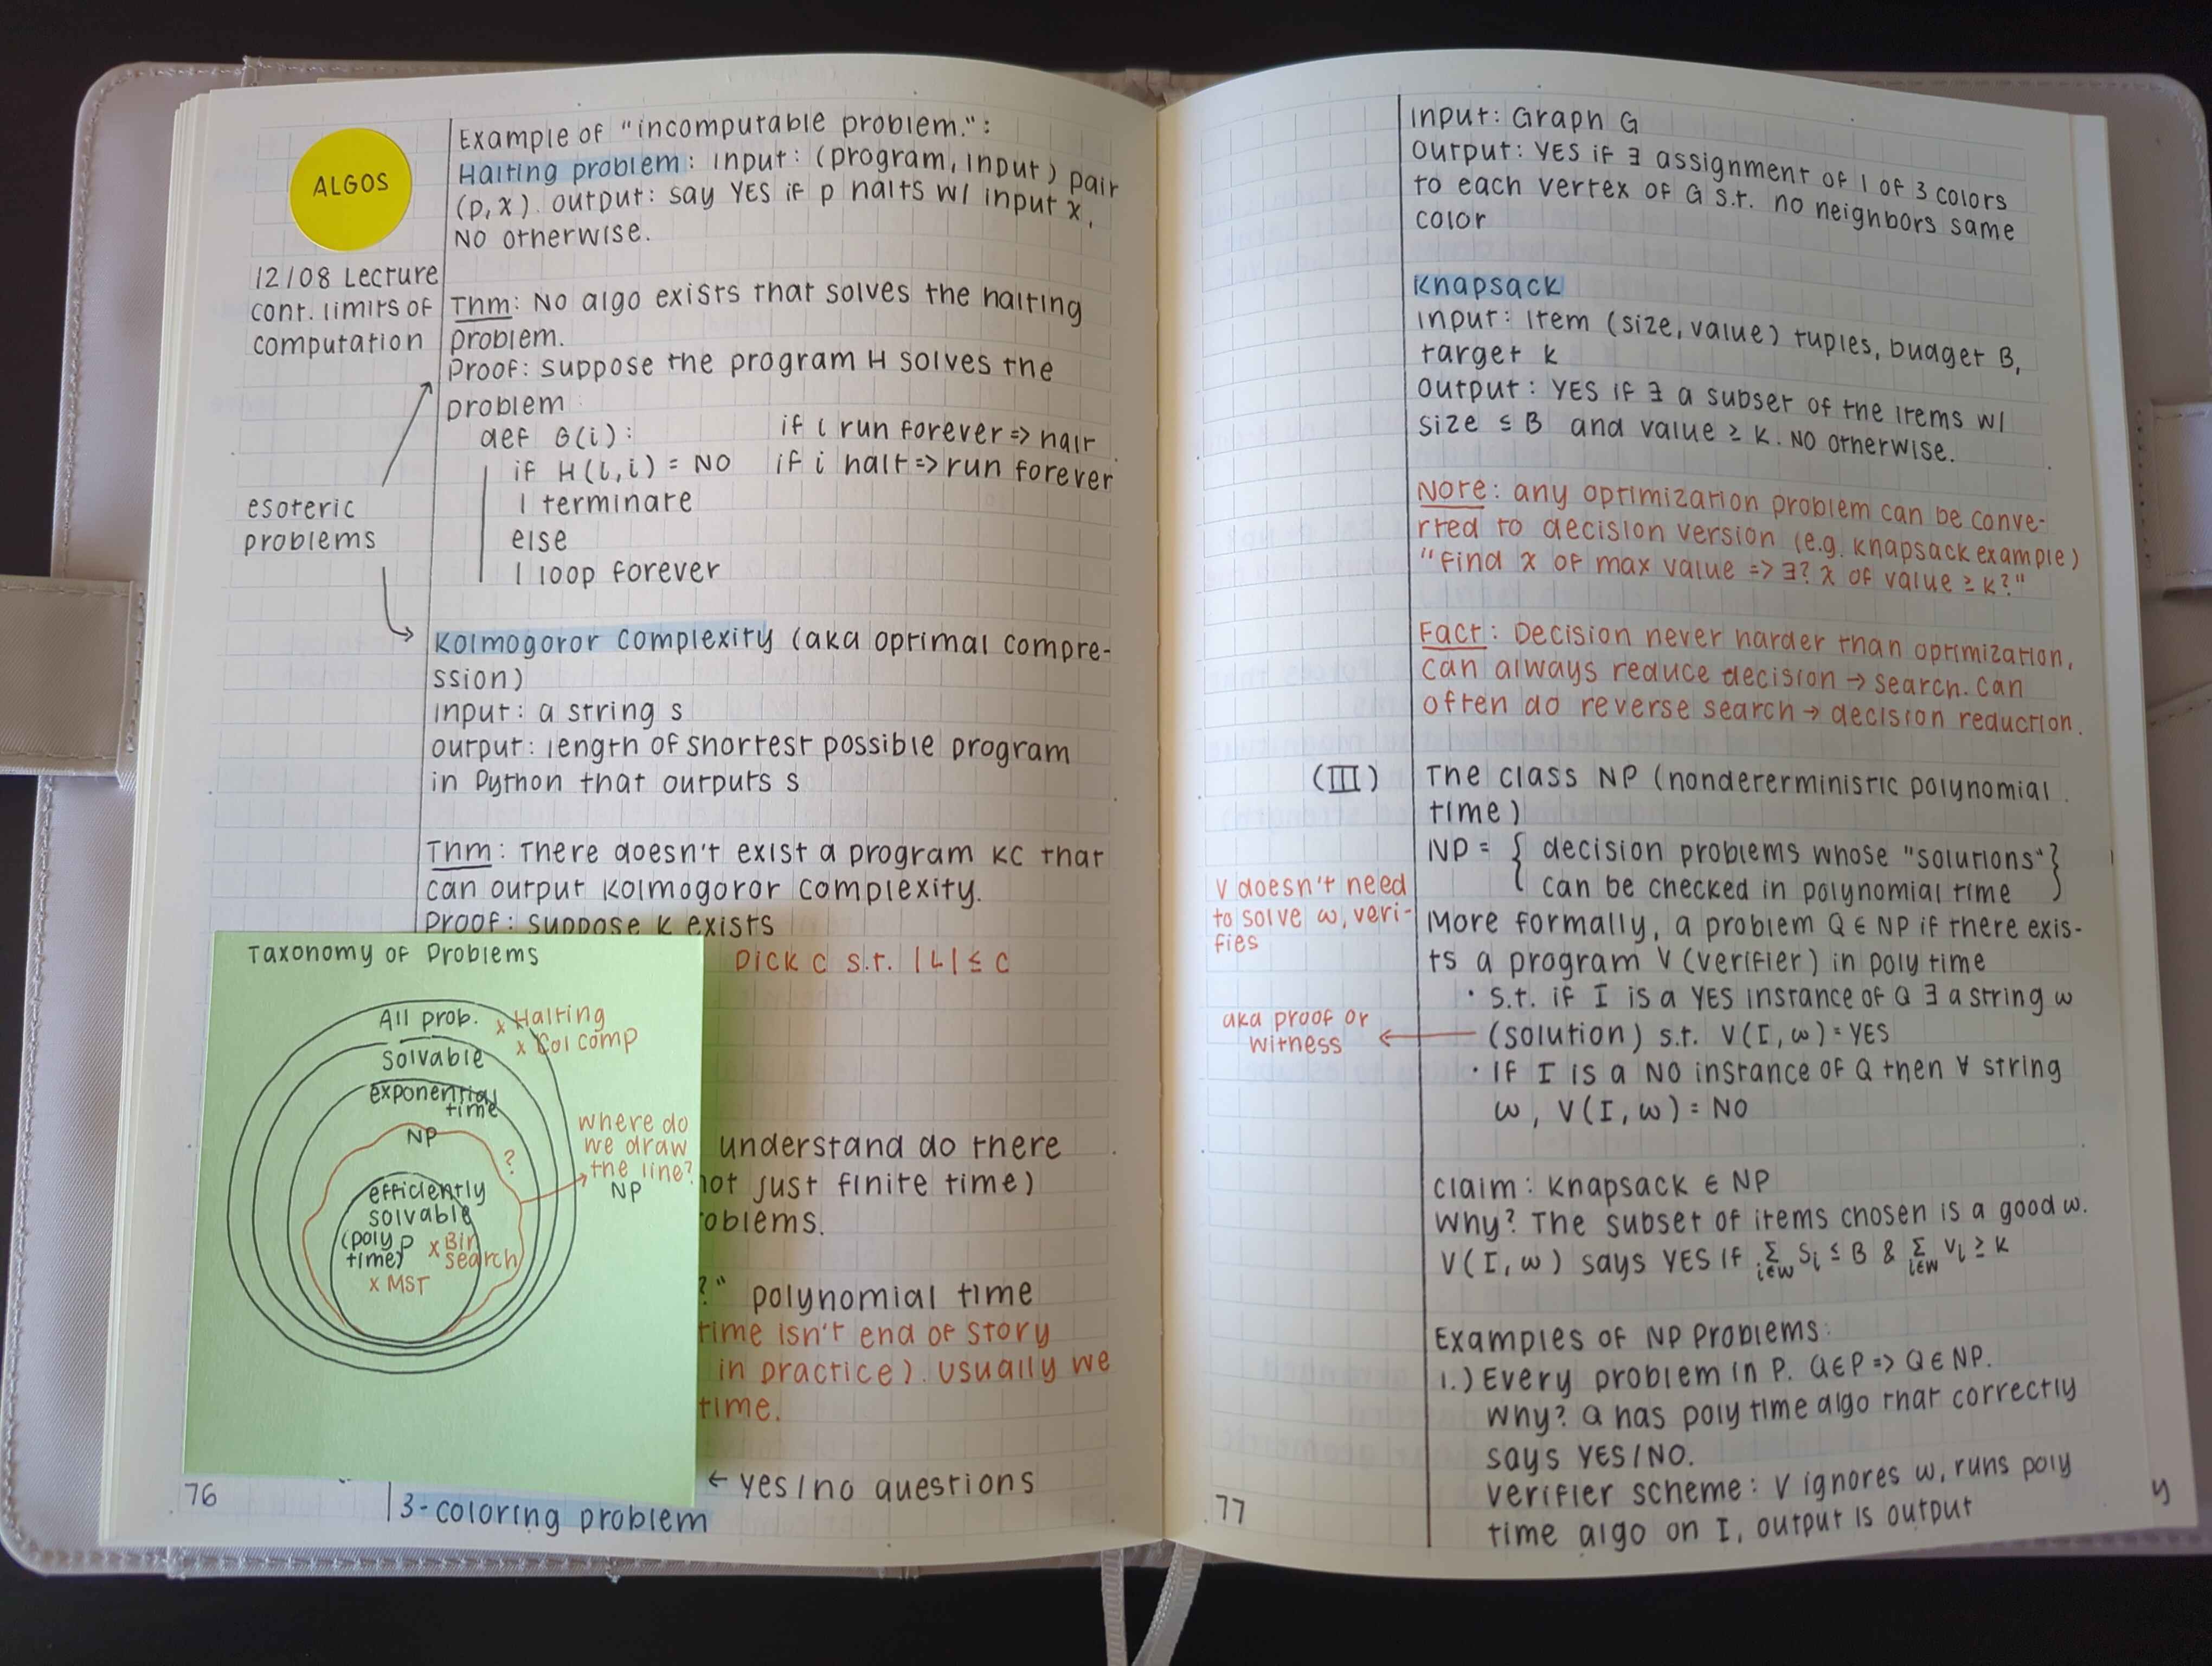 ALGOS
12/08 Lecture
cont. limits of
computation
esoteric
problems
Example of "incomputable problem.":
Halting problem: input: (program, input) pair
(p, x). output: say YES if p halts w/ input x,
NO otherwise.
Thm: No algo exists that solves the halting
problem.
Proof: suppose the program H solves the
problem:
def G(i): if i run forever => halt
if H(i,i) = NO if i halt => run forever
terminate
else
loop forever
Kolmogorov complexity (aka optimal compre-
ssion)
input: a string s
output: length of shortest possible program
in Python that outputs s
Thm: There doesn't exist a program KC that
can output Kolmogorov complexity.
Proof: suppose K exists
pick c s.t. |L| ≤ c
understand do there
not just finite time)
oblems.
?" polynomial time
time isn't end of story
in practice). usually we
time.
← yes/no questions
3-coloring problem
76
Taxonomy of Problems
All prob.
x Halting
x Col comp
solvable
exponential
time
NP
?
where do
we draw
the line?
NP
efficiently
solvable
(poly P
time)
x Bin
search
x MST
input: Graph G
output: YES if ∃ assignment of 1 of 3 colors
to each vertex of G s.t. no neighbors same
color
Knapsack
input: item (size, value) tuples, budget B,
target k
output: YES if ∃ a subset of the items w/
size ≤ B and value ≥ k. NO otherwise.
Note: any optimization problem can be conve-
rted to decision version (e.g. knapsack example)
"Find x of max value => ∃? x of value ≥ k?"
Fact: Decision never harder than optimization,
can always reduce decision → search. can
often do reverse search → decision reduction.
(III) The class NP (nondeterministic polynomial
time)
NP = { decision problems whose "solutions" }
can be checked in polynomial time
V doesn't need
to solve w, veri-
fies
More formally, a problem Q ∈ NP if there exis-
ts a program V (verifier) in poly time
· s.t. if I is a YES instance of Q ∃ a string w
(solution) s.t. V(I, w) = YES
aka proof or
witness
· If I is a NO instance of Q then ∀ string
w, V(I, w) = NO
claim: Knapsack ∈ NP
Why? The subset of items chosen is a good w.
V(I, w) says YES if Σ i∈w Si ≤ B & Σ i∈w Vi ≥ k
Examples of NP Problems:
1.) Every problem in P. Q∈P => Q∈NP.
Why? Q has poly time algo that correctly
says YES/NO.
Verifier scheme: V ignores w, runs poly
time algo on I, output is output
77
y